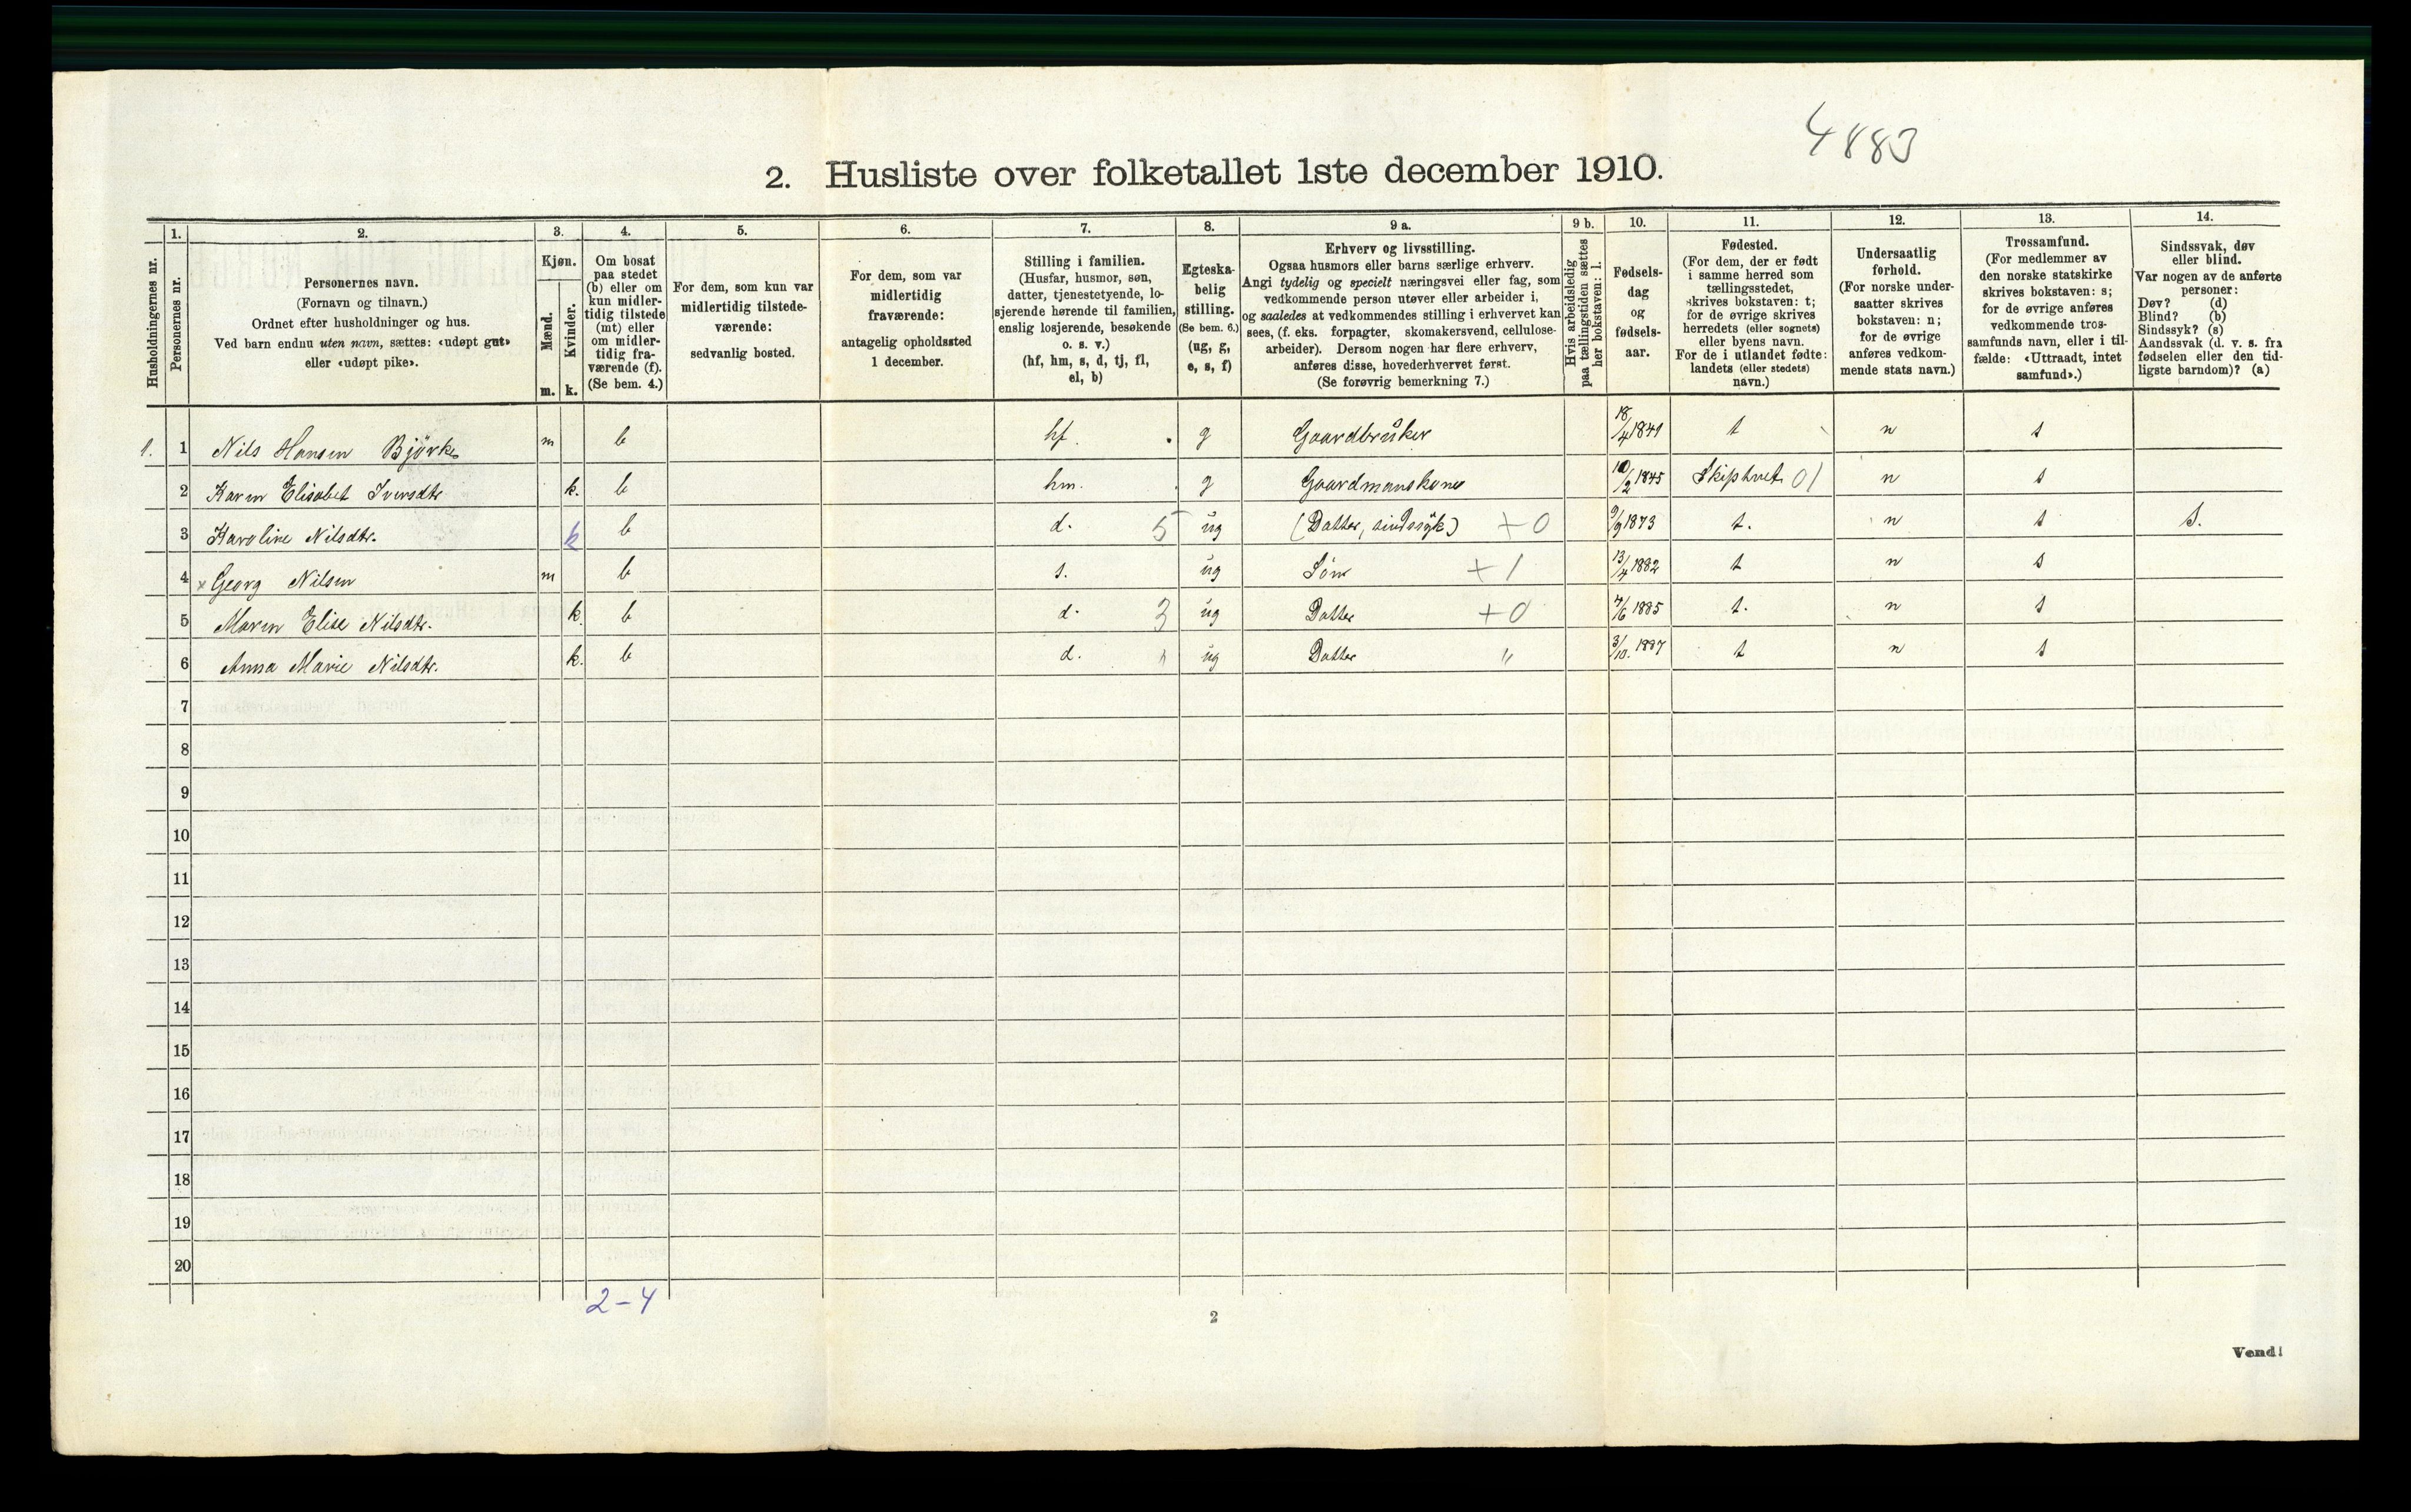 4883
2. Husliste over folketallet 1ste december 1910.
Husholdningernes nr.
1.
Personernes nr.
2.
Personernes navn.
(Fornavn og tilnavn.)
Ordnet efter husholdninger og hus.
Ved barn endnu uten navn, sættes: «udøpt gut»
eller «udøpt pike».
3.
Kjøn.
Mænd.
Kvinder.
m. k.
4.
Om bosat
paa stedet
(b) eller om
kun midler-
tidig tilstede
(mt) eller
om midler-
tidig fra-
værende (f).
(Se bem. 4.)
5.
For dem, som kun var
midlertidig tilstede-
værende:
sedvanlig bosted.
6.
For dem, som var
midlertidig
fraværende:
antagelig opholdssted
1 december.
7.
Stilling i familien.
(Husfar, husmor, søn,
datter, tjenestetyende, lo-
sjerende hørende til familien,
enslig losjerende, besøkende
o. s. v.)
(hf, hm, s, d, tj, fl,
el, b)
8.
Egteska-
belig
stilling.
(Se bem. 6.)
(ug, g,
e, s, f)
9 a.
Erhverv og livsstilling.
Ogsaa husmors eller barns særlige erhverv.
Angi tydelig og specielt næringsvei eller fag, som
vedkommende person utøver eller arbeider i,
og saaledes at vedkommendes stilling i erhvervet kan
sees, (f. eks. forpagter, skomakersvend, cellulose-
arbeider). Dersom nogen har flere erhverv,
anføres disse, hovederhvervet først.
(Se forøvrig bemerkning 7.)
9 b.
Hvis arbeidsledig
paa tællingstiden sættes
her bokstaven: l.
10.
Fødsels-
dag
og
fødsels-
aar.
11.
Fødested.
(For dem, der er født
i samme herred som
tællingsstedet,
skrives bokstaven: t;
for de øvrige skrives
herredets (eller sognets)
eller byens navn.
For de i utlandet fødte:
landets (eller stedets)
navn.)
12.
Undersaatlig
forhold.
(For norske under-
saatter skrives
bokstaven: n;
for de øvrige
anføres vedkom-
mende stats navn.)
13.
Trossamfund.
(For medlemmer av
den norske statskirke
skrives bokstaven: s;
for de øvrige anføres
vedkommende tros-
samfunds navn, eller i til-
fælde: «Uttraadt, intet
samfund».)
14.
Sindssvak, døv
eller blind.
Var nogen av de anførte
personer:
Døv? (d)
Blind? (b)
Sindssyk? (s)
Aandssvak (d. v. s. fra
fødselen eller den tid-
ligste barndom)? (a)
1. 1 Nils Hansen Björke m b hf. g Gaardbrüker 18/4 1841 t n s
2 Karen Elisabet Iversdtr k. b hm. g Gaardmanskone 10/2 1845 Skiptvet 01 n s
3 Karoline Nilsdtr. k b d. 5 üg (Datter, sindssÿk) +0 9/9 1873 t. n s S.
4 × Georg Nilsen m b s. üg Sön +1 13/4 1882 t n s
5 Maren Elise Nilsdtr. k. b d. 3 üg Datter +0 7/6 1885 t. n s
6 Anna Marie Nilsdtr. k. b d. " üg Datter " 3/10. 1887 t n s
7
8
9
10
11
12
13
14
15
16
17
18
19
20
2-4
2
Vend!